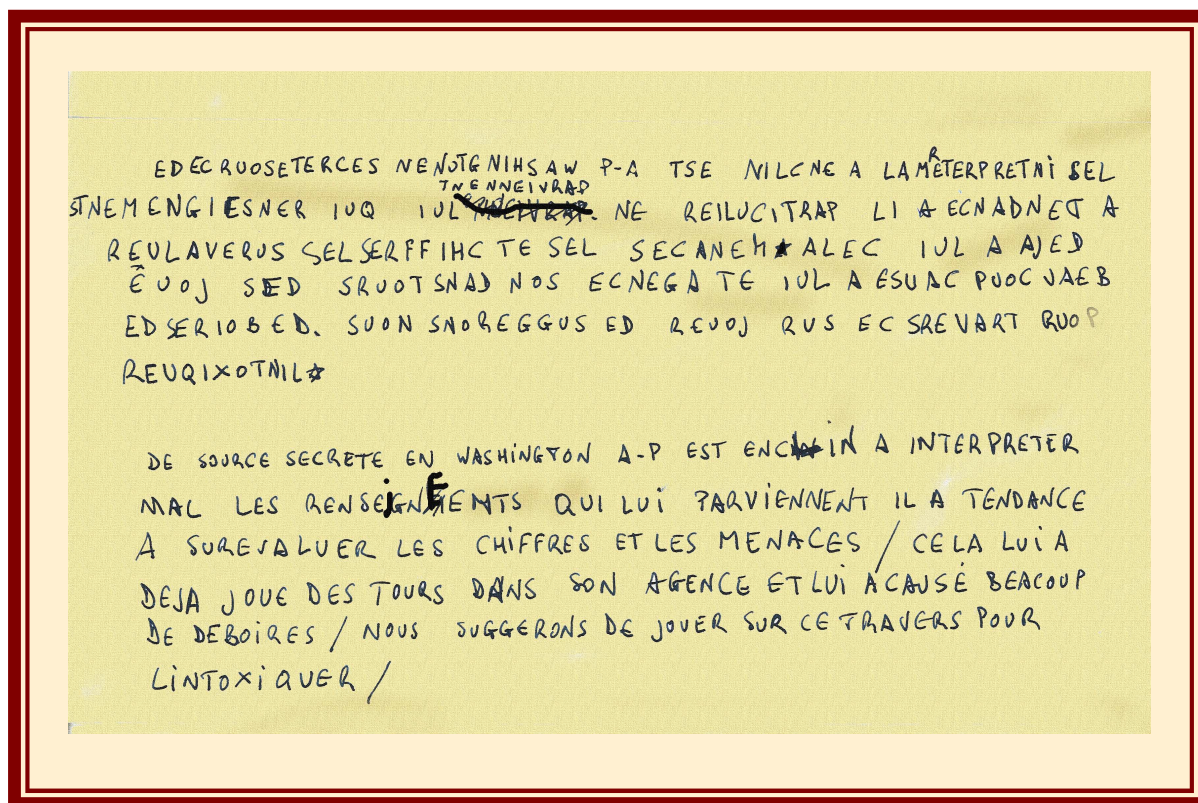 EDECRUOSETERCES NENOTGNIHSAW P-A TSE NILCNE A LAMRETERPRETNI SEL
TNENNEIVRAP
STNEMENGIESNER IUQ IUL . NE REILUCITRAP LI A ECNADNET A
REULAVERUS SELSERFFIHC TE SEL SECANEM★ ALEC IUL A AJED
ÊUOJ SED SRUOTSNAD NOS ECNEGA TE IUL A ESUAC PUOCUAEB
EDSERIOBED. SUON SNOREGGUS ED REUOJ RUS EC SREVART RUOP
REUQIXOTNIL☆
DE SOURCE SECRETE EN WASHINGTON A-P EST ENCLIN A INTERPRETER
MAL LES RENSEIGNEMTS QUI LUI PARVIENNENT IL A TENDANCE
A SUREVALUER LES CHIFFRES ET LES MENACES / CELA LUI A
DEJA JOUE DES TOURS DANS SON AGENCE ET LUI A CAUSÉ BEACOUP
DE DEBOIRES / NOUS SUGGERONS DE JOUER SUR CE TRAVERS POUR
LINTOXIQUER /